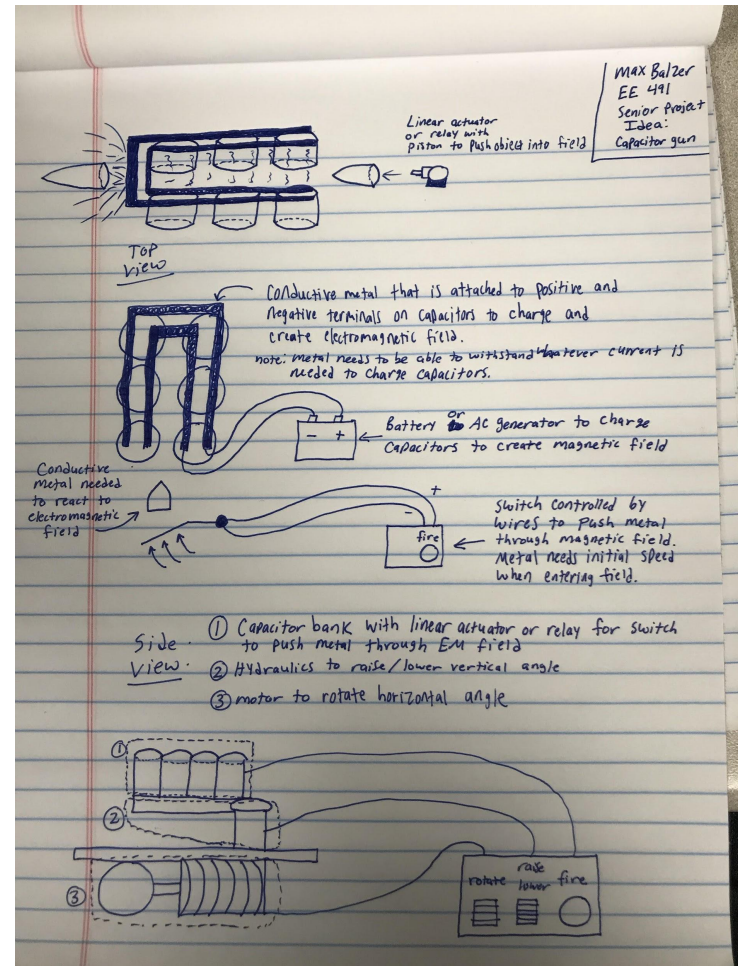 Max Balzer
EE 491
Senior Project
Idea:
Capacitor gun
Linear actuator
or relay with
piston to push object into field
TOP
View
Conductive metal that is attached to positive and
negative terminals on capacitors to charge and
create electromagnetic field.
note: metal needs to be able to withstand whatever current is
needed to charge capacitors.
- +
Battery or AC generator to charge
capacitors to create magnetic field
Conductive
metal needed
to react to
electromagnetic
field
+
-
fire
Switch controlled by
wires to push metal
through magnetic field.
Metal needs initial speed
when entering field.
Side
View
① Capacitor bank with linear actuator or relay for switch
to push metal through EM field
② Hydraulics to raise/lower vertical angle
③ motor to rotate horizontal angle
①
②
③
rotate
raise
lower
fire